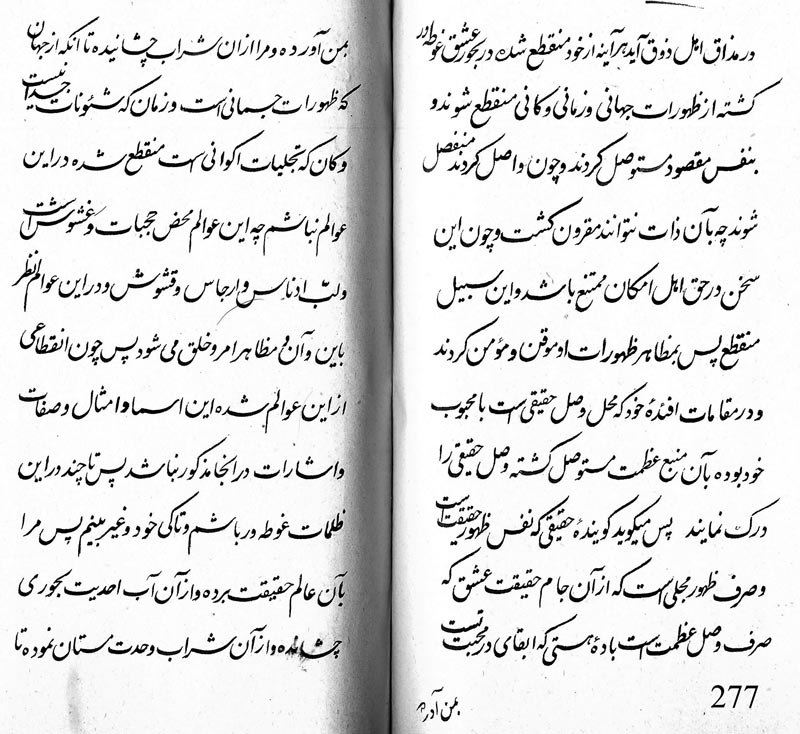 در مذاق اهل ذوق آید هر آینه از خود منقطع شده در بحور عشق غوطه ور
کشته از ظهورات جهانی و زمانی و کانی منقطع شوند و
بنفس مقصود مستوصل کردند و چون واصل کردند منفصل
شوند چه بآن ذات نتوانند مقرون کشت و چون این
سخن در حق اهل امکان ممتنع باشد و این سبیل
منقطع پس بمظاهر ظهورات او موقن و مؤمن کردند
و در مقامات افئدهٔ خود که محل وصل حقیقی است با محبوب
خود بوده بآن منبع عظمت مستوصل کشته وصل حقیقی را
درک نمایند پس میکوید کویندهٔ حقیقی که نفس ظهور حقیقت است
و صرف ظهور مجلی است که از آن جام حقیقت عشق که
صرف وصل عظمت است بادهٔ هستی که ابقای در محبت تست
بمن آور
277
بمن آورده و مرا از ان شراب چشانیده تا انکه از جهان
که ظهورات جسمانی است و زمان که شئونات جیدا نیست
و کان که تجلیات اکوانی است منقطع شده در این
عوالم نباشم چه این عوالم محض حجبات و غشوش است
ولب ادناس و ارجاس و قشوش و در این عوالم نظر
باین و آن و مظاهر امر و خلق می شود پس چون انقطاعی
از این عوالم شده این اسما و امثال و صفات
و اشارات در انجا مذکور نباشد پس تا چند در این
ظلمات غوطه ور باشم و تا کی خود و غیر بینم پس مرا
بآن عالم حقیقت برده و از آن آب احدیت بحوری
چشانیده و از آن شراب وحدت مستان نموده تا